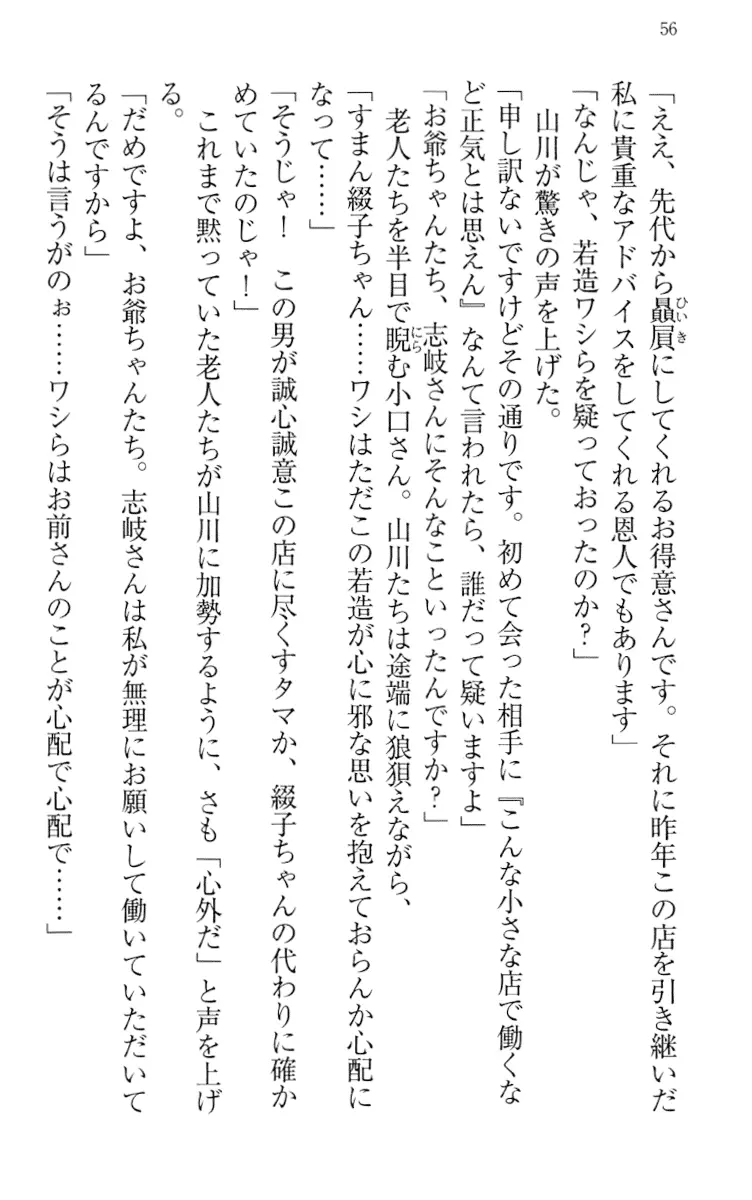 56
「ええ、先代から贔屓にしてくれるお得意さんです。それに昨年この店を引き継いだ
私に貴重なアドバイスをしてくれる恩人でもあります」
「なんじゃ、若造ワシらを疑っておったのか?」
　山川が驚きの声を上げた。
「申し訳ないですけどその通りです。初めて会った相手に『こんな小さな店で働くな
ど正気とは思えん』なんて言われたら、誰だって疑いますよ」
「お爺ちゃんたち、志岐さんにそんなこといったんですか?」
　老人たちを半目で睨む小口さん。山川たちは途端に狼狽えながら、
「すまん綴子ちゃん……ワシはただこの若造が心に邪な思いを抱えておらんか心配に
なって……」
「そうじゃ!　この男が誠心誠意この店に尽くすタマか、綴子ちゃんの代わりに確か
めていたのじゃ!」
　これまで黙っていた老人たちが山川に加勢するように、さも「心外だ」と声を上げ
る。
「だめですよ、お爺ちゃんたち。志岐さんは私が無理にお願いして働いていただいて
るんですから」
「そうは言うがのぉ……ワシらはお前さんのことが心配で心配で……」